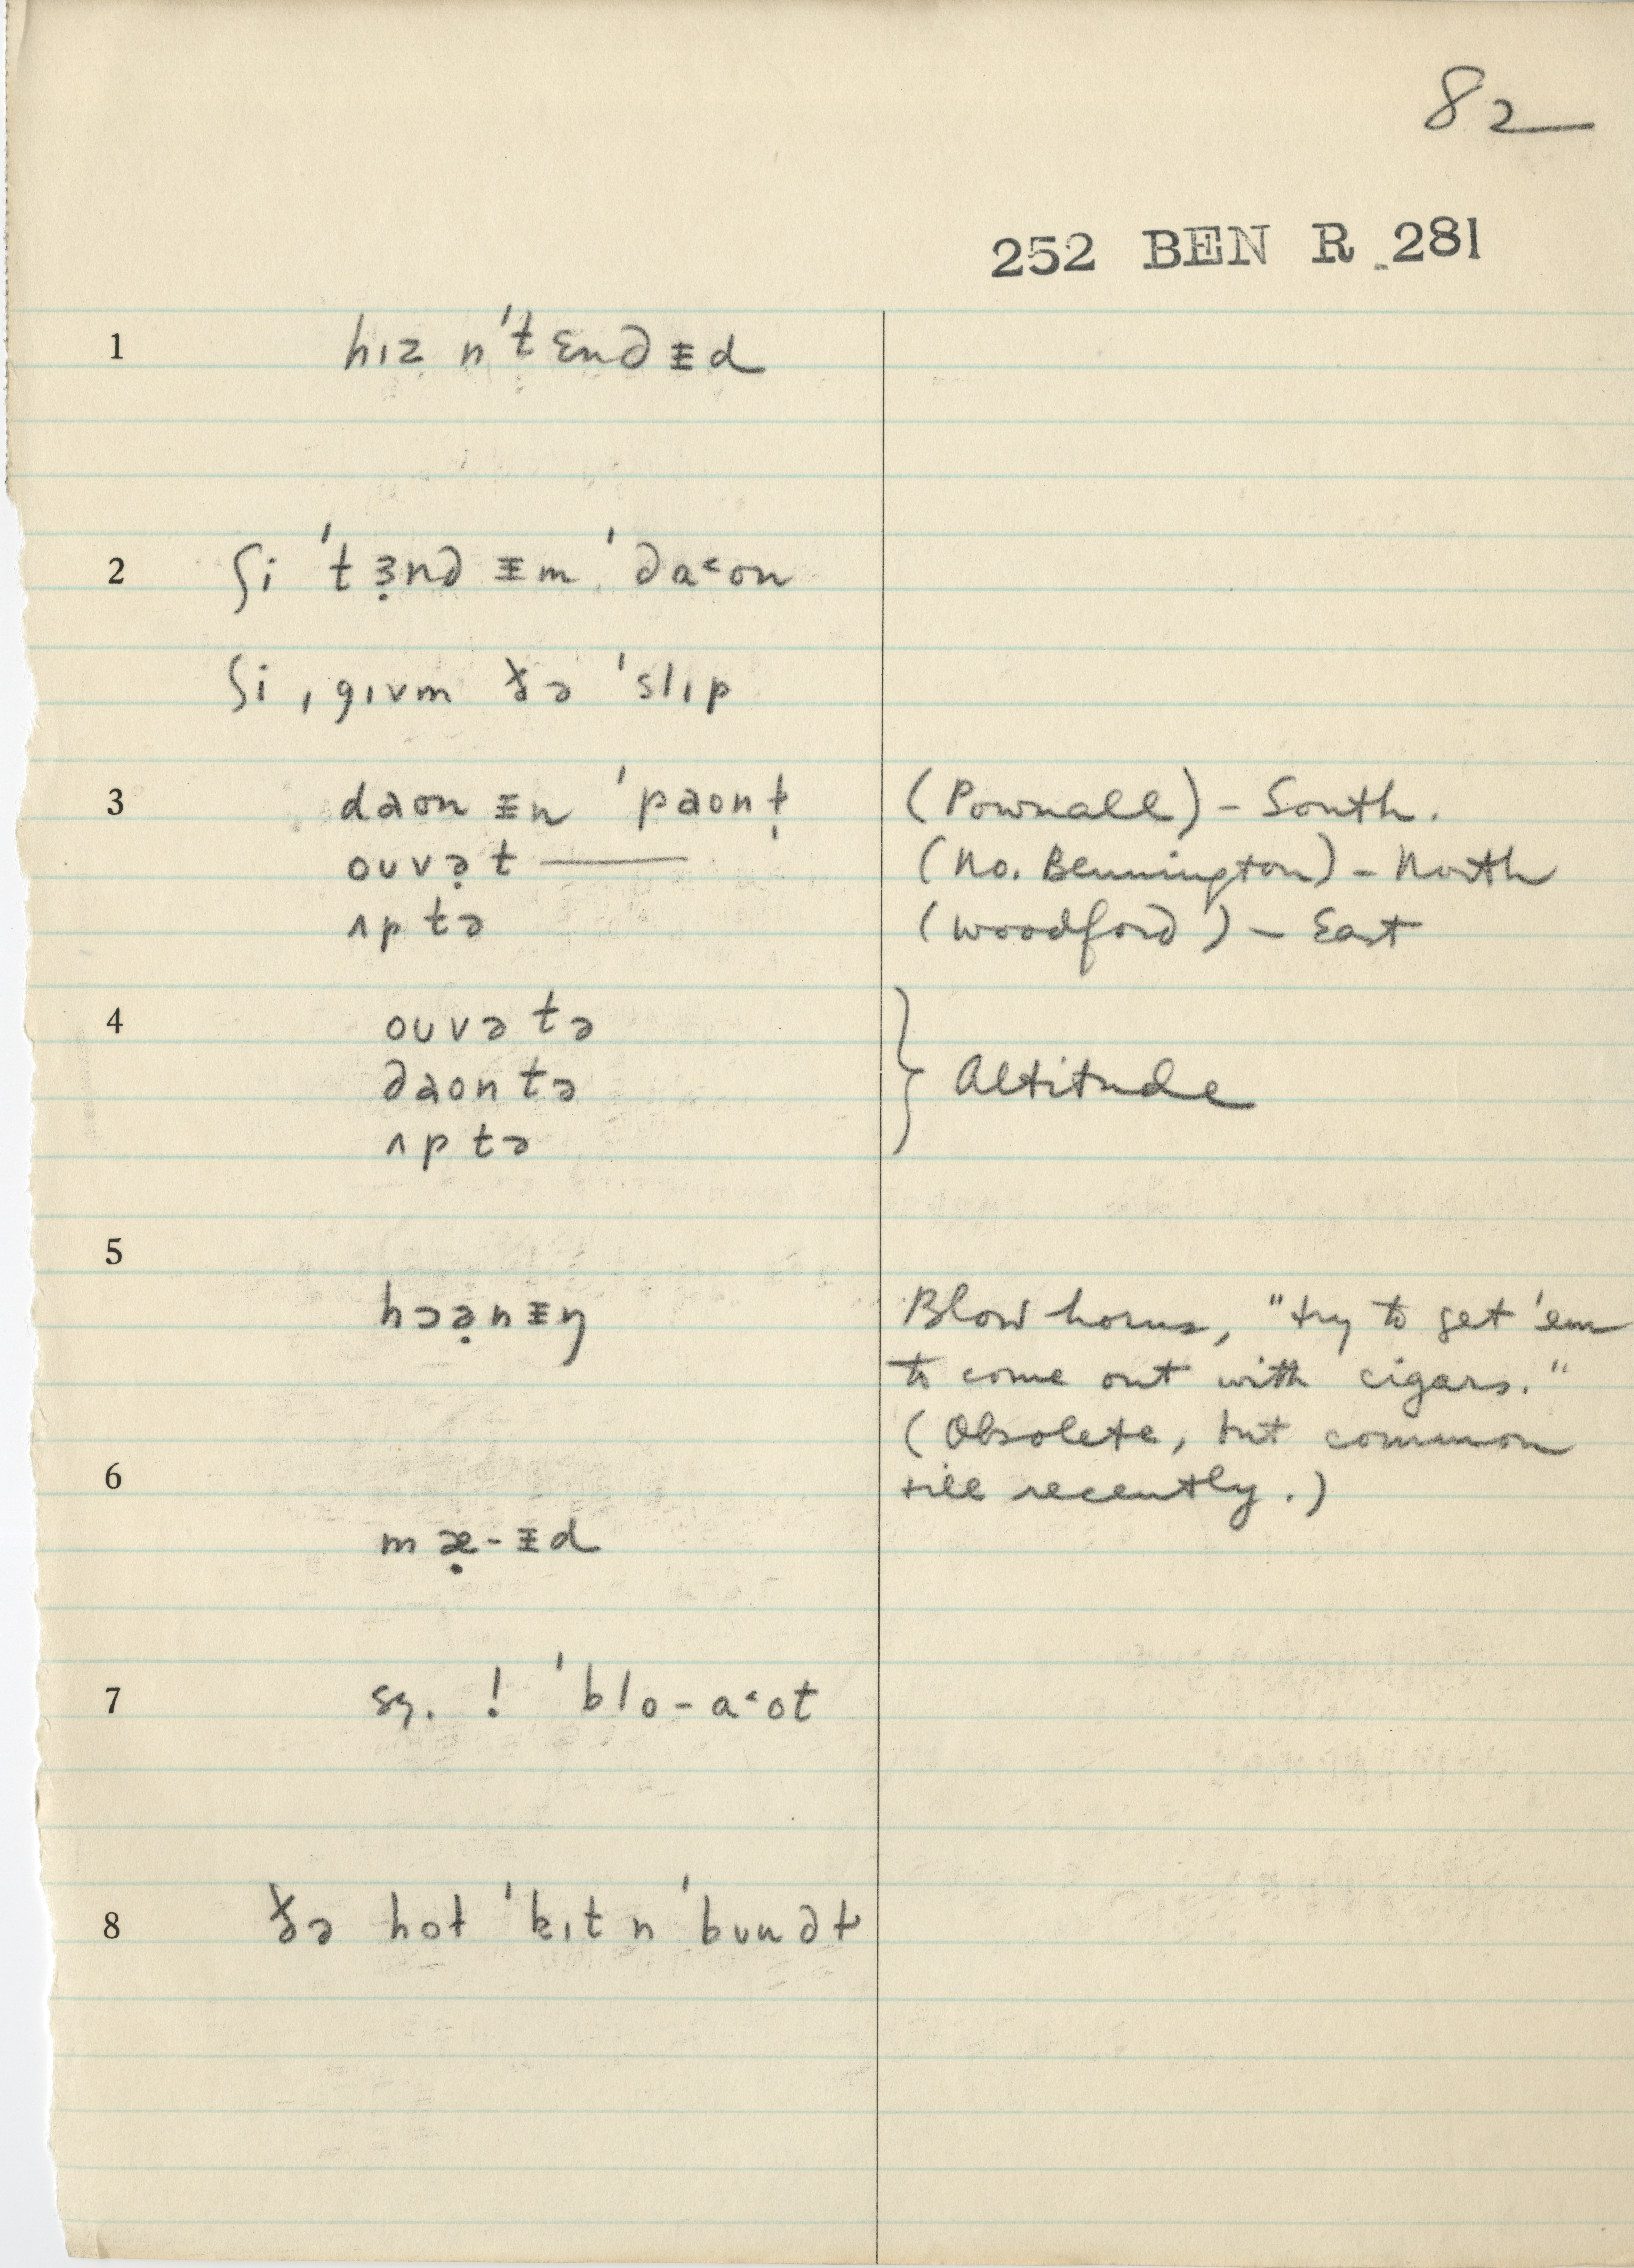 82
252 BEN R 281
1 hɪz n'tɛndᵻd
2 ʃi 'tɜ̣nd ᵻm 'da˂ʊn
ʃi ˌgɪvm ðə 'slɪp
3 daʊn ᵻn 'paʊnɫ̩ (Pownall) – South.
oʊvə̣t —— (No. Bennington) – North
ʌp tə (Woodford) – East
4 oʊvə tə
daʊn tə } Altitude
ʌp tə
5
hɔə̣nᵻŋ Blow horns, "try to get 'em
to come out with cigars."
(Obsolete, but common
6 till recently.)
mæ̣-ᵻd
7 sɜ. ! 'blo-a˂ʊt
8 ðə hoɫ 'kɪt n 'bundɫ